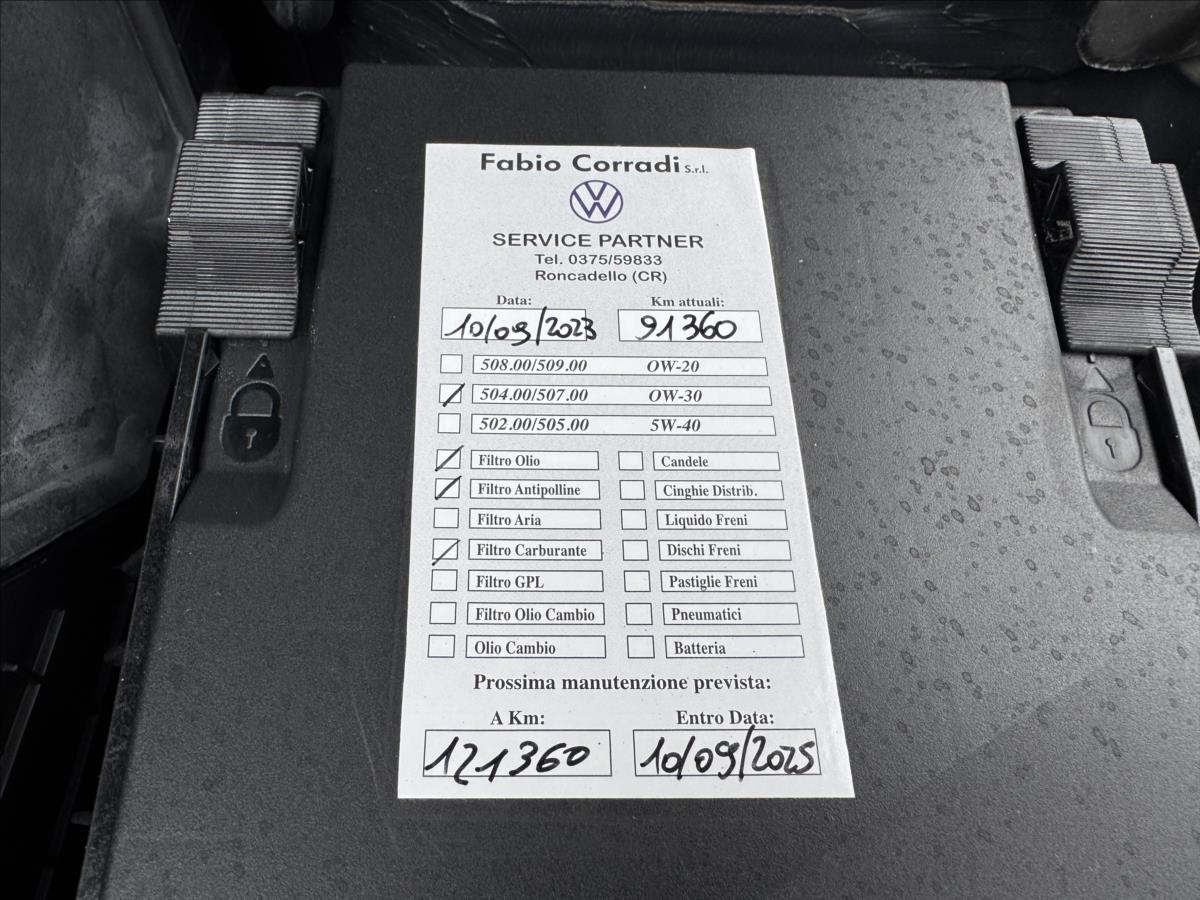 Fabio Corradi S.r.l.
SERVICE PARTNER
Tel. 0375/59833
Roncadello (CR)
Data: Km attuali:
10/09/2023 91360
508.00/509.00 OW-20
504.00/507.00 OW-30
502.00/505.00 5W-40
Filtro Olio Candele
Filtro Antipolline Cinghie Distrib.
Filtro Aria Liquido Freni
Filtro Carburante Dischi Freni
Filtro GPL Pastiglie Freni
Filtro Olio Cambio Pneumatici
Olio Cambio Batteria
Prossima manutenzione prevista:
A Km: Entro Data:
121360 10/09/2025